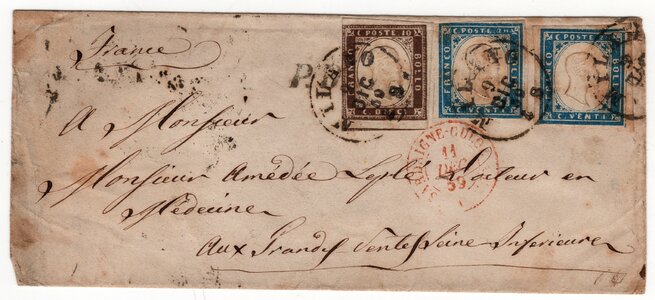 France
C. POSTE 10
FRANCO
BOLLO
C. POSTE 20
FRANCO
BOLLO
C. VENTI
C. POSTE
FRANCO
BOLLO
C. VENTI
DIC
59
11
DEC
59
A Monsieur
Monsieur Amédée Docteur en
Médecine
Aux Grandes Ventes Seine Inferieure